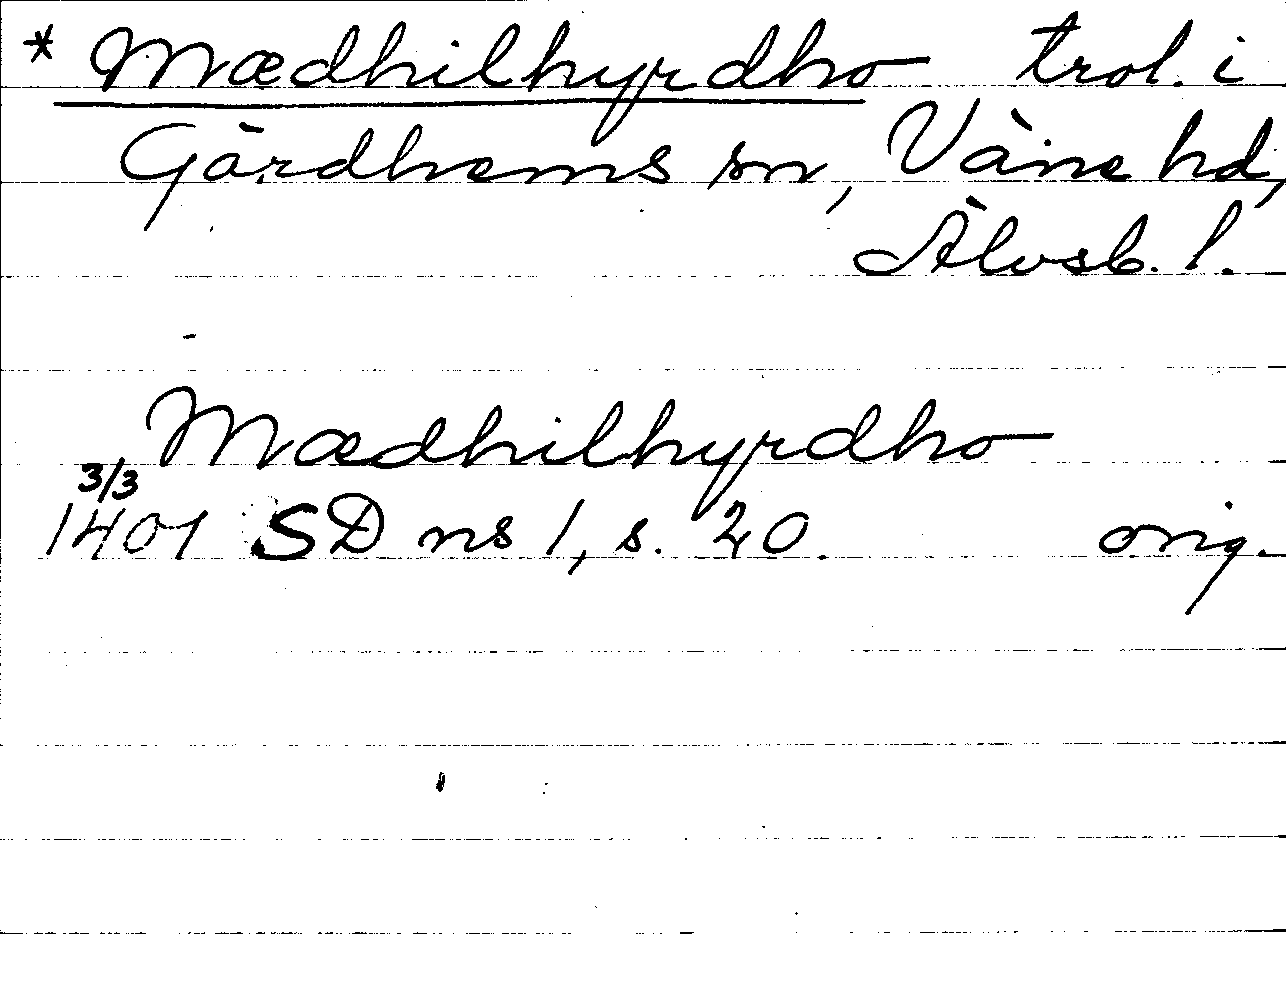 * Mædhilhyrdho trol. i
Gärdhems sn, Väne hd,
Älvsb. l.
Mædhilhyrdho
3/3
1401 SD ns 1, s. 20. orig.